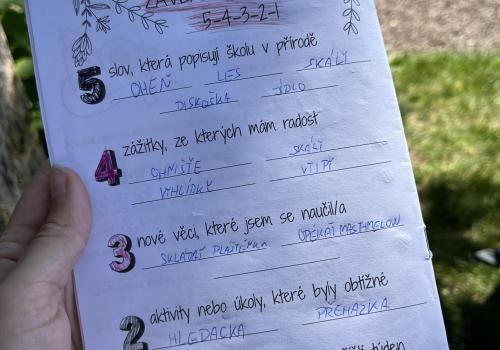 5-4-3-2-1
5 slov, která popisují školu v přírodě
OHEŇ LES SKÁLY
DISKOŠKA JÍDLO
4 zážitky, ze kterých mám radost
OHNIŠTE SKÁLY
VYHLÍDKY VTIPY
3 nové věci, které jsem se naučil/a
SKLÁDAT PLÁŠTĚNKA OPÉKAT MASHMELOW
2 aktivity nebo úkoly, které byly obtížné
HLEDAČKA PŘECHÁZKA
týden